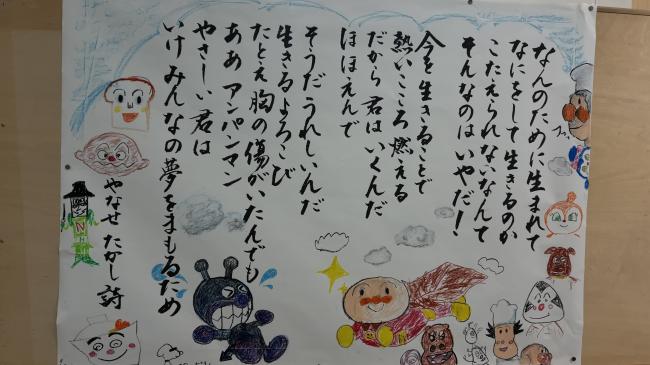 なんのために生まれて
なにをして生きるのか
こたえられないなんて
そんなのはいやだ!
今を生きることで
熱いこころ燃える
だから君はいくんだ
ほほえんで
そうだうれしいんだ
生きるよろこび
たとえ胸の傷がいたんでも
ああ アンパンマン
やさしい君は
いけ みんなの夢をまもるため
やなせ たかし 詩
N